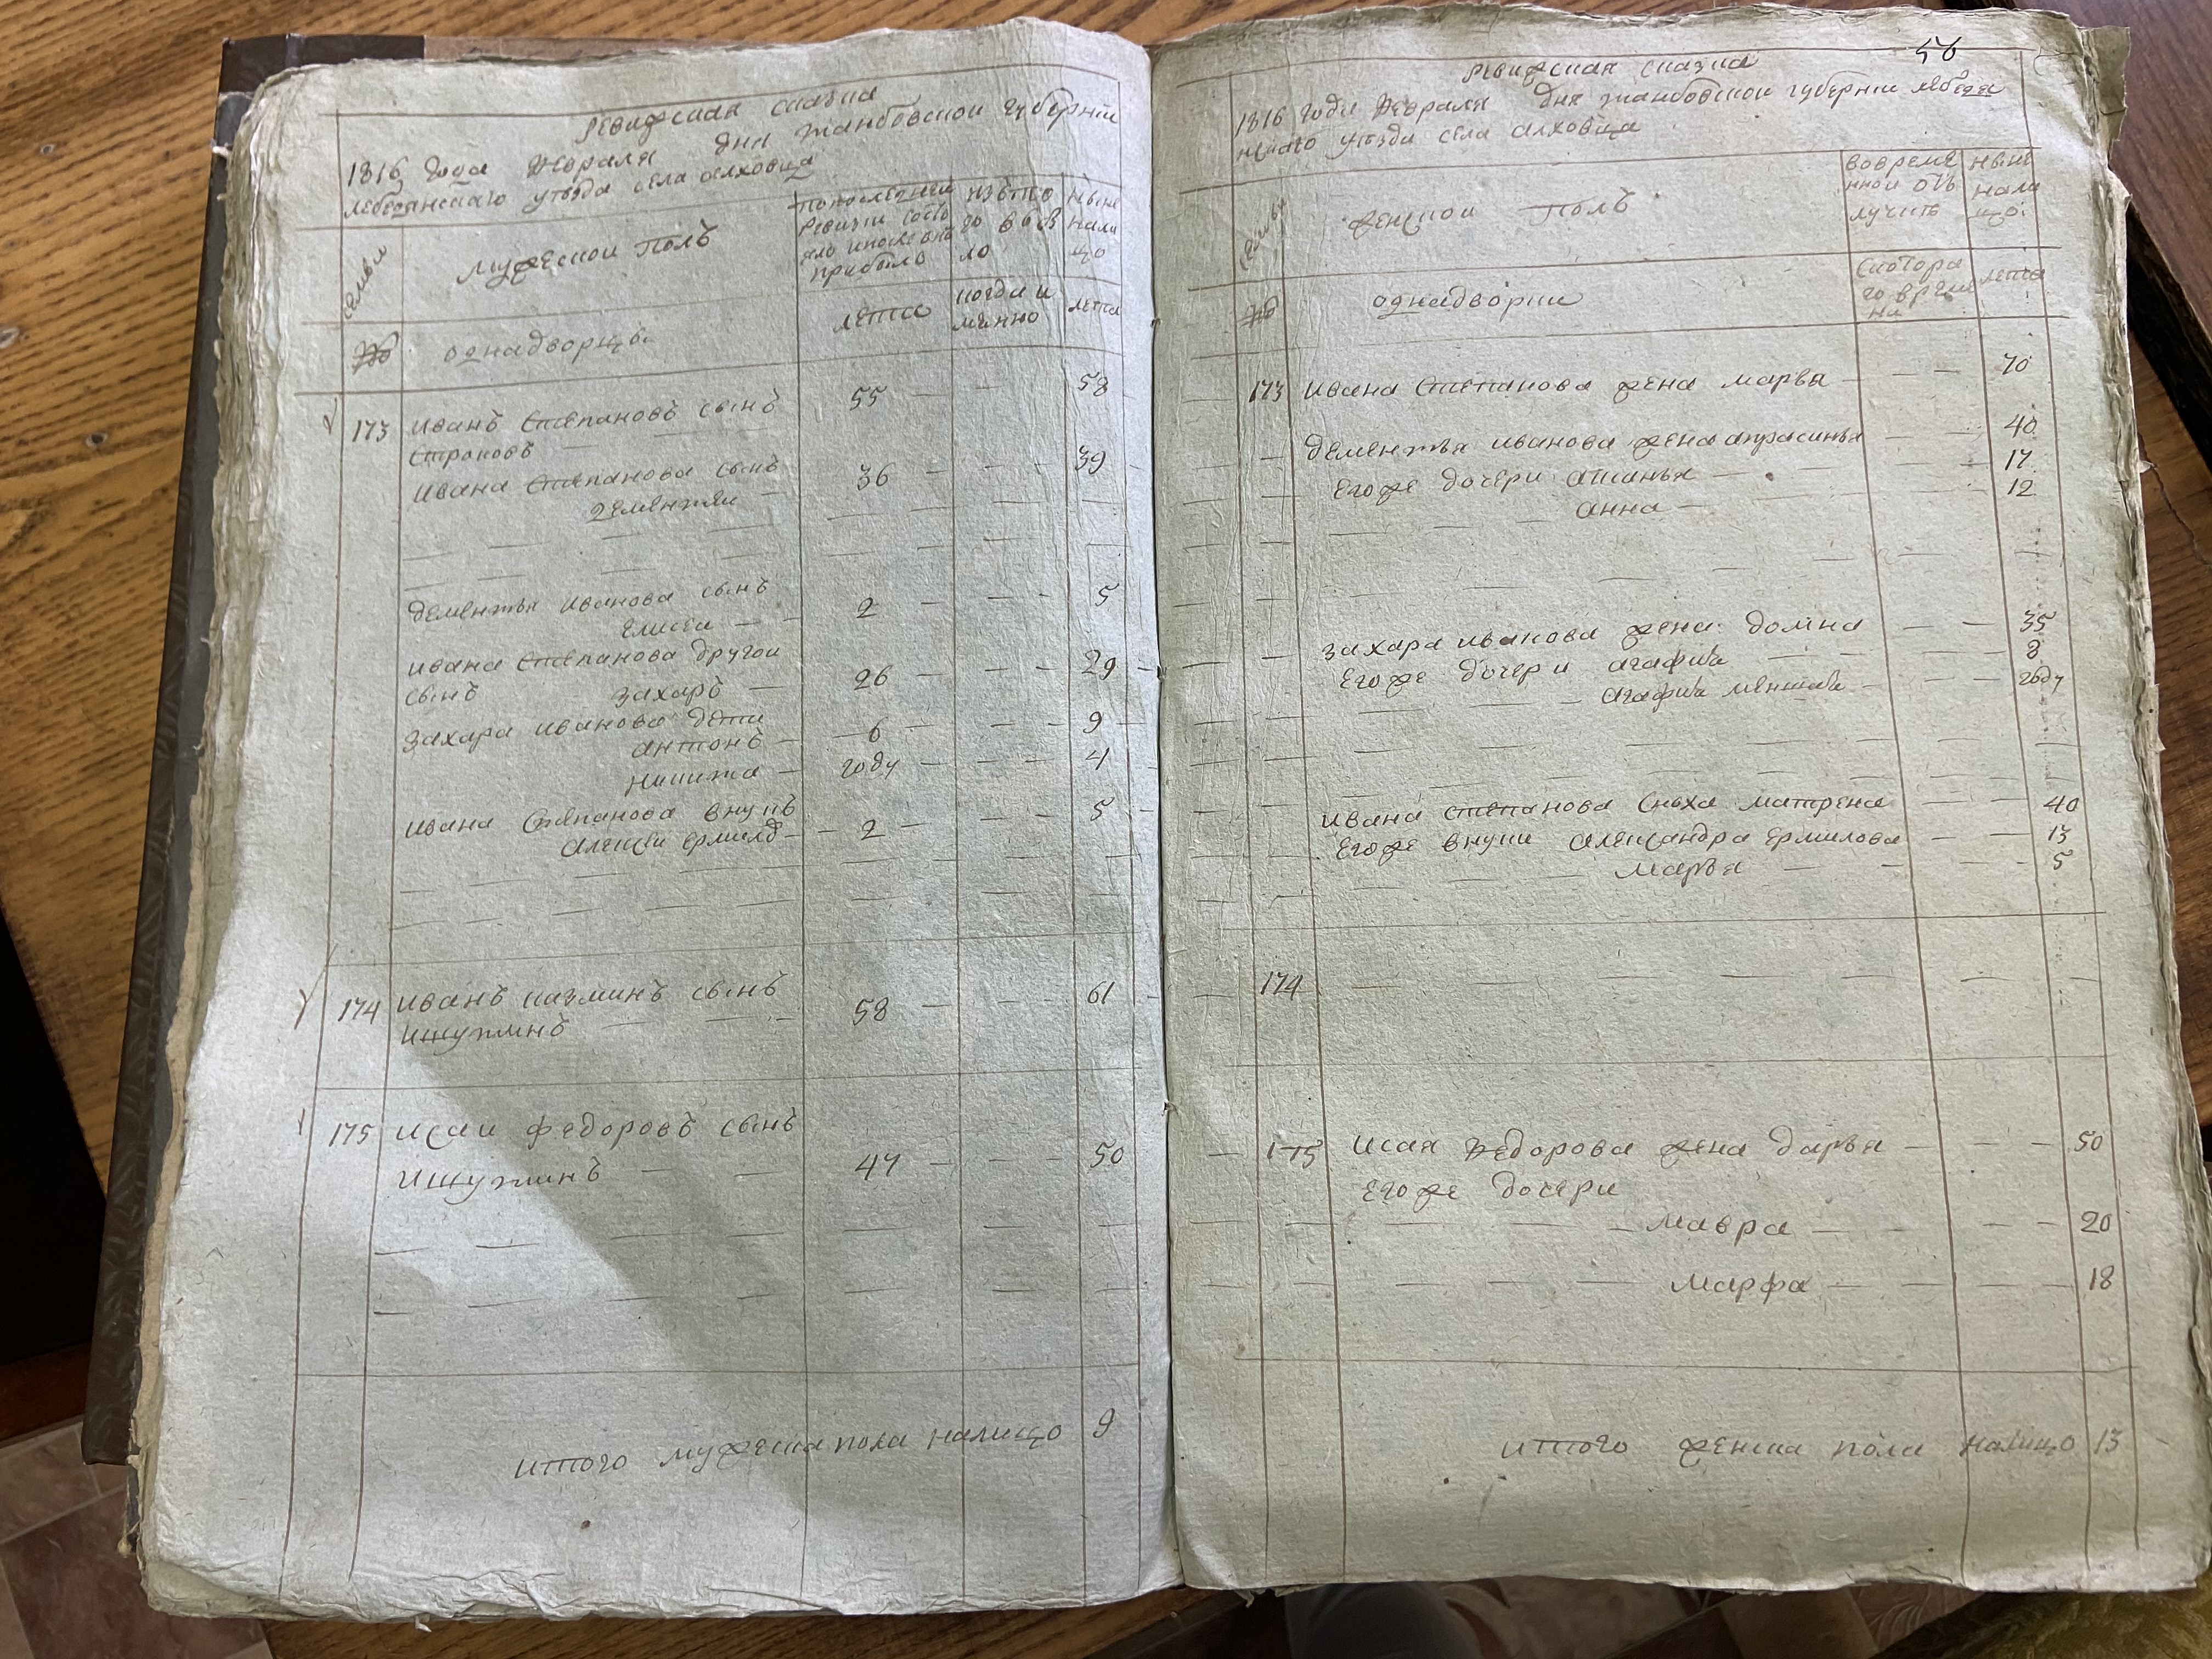 Ревижская сказка
1816 года Февраля дня тамбовской губернии
лебедянскаго уезда села алховца
семьи
мужеской полъ
попоследней ревизи состояло ипослетого прибыло
изътого выбыло
ныне налицо
№
однадворцы.
лета
когда имянно
лета
173 иванъ степановъ сынъ 55 — 58
страховъ —
ивана степанова сынъ 36 — — — 39
дементеи —
дементья иванова сынъ
елисеи — — 2 — — — 5
ивана степанова другои
сынъ захаръ — 26 — — — 29
захара иванова дети
антонъ — 6 — — — 9
никита — году — — — 4
ивана степанова внукъ
алексеи ермилъ — 2 — — — 5
174 иванъ казминъ сынъ 58 — — — 61
ишутинъ — — —
175 исаи федоровъ сынъ
ишутинъ — — 47 — — — 50
итого мужеска пола налицо 9
56
Ревижская сказка
1816 года Февраля дня тамбовской губернии лебедя
нскаго уезда села алховца
семьи
женской полъ
вовременной отълучьке
ныне налицо.
№
однадворки
скоторого времени
лета
173 ивана степанова жена марвы — — — 70
дементья иванова жена апрасинья — — 40
Егоже дочери акинья — — — 17
анна — — — 12
захара иванова жена домна — — 35
Егоже дочери агафия — — — 8
агафия меншая — — — году
ивана степанова сноха матрена — — 40
Егоже внуки александра ермилова — — 13
марья — — — 5
174
175 исая Федорова жена дарья — — — 50
Егоже дочери
мавра — — — 20
марфа — — — 18
итого женска пола налицо 13